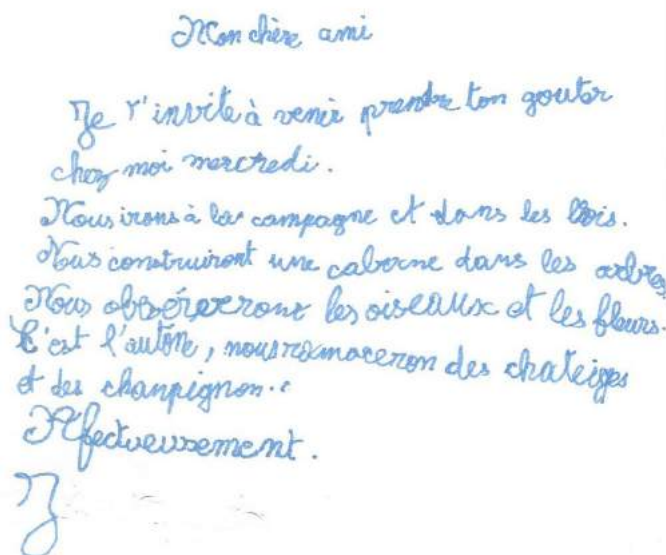 Mon chère ami
Je t'invite à venir prendre ton gouter
chez moi mercredi.
Nous irons à la campagne et dans les bois.
Nous construiront une caberne dans les arbres
Nous obsérverront les oiseaux et les fleurs.
C'est l'autone, nous ramaceron des chateiges
et des chanpignon.
Afectueusement.
J